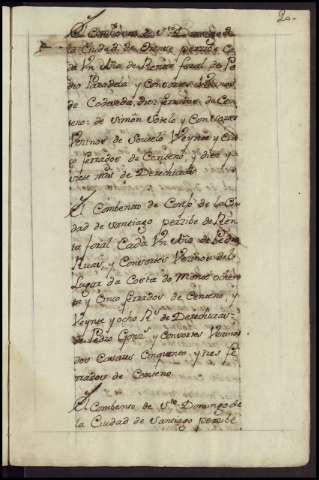 20.
El Combento de Sto. Domingo de
la Ciudad de Orense perzibe Ca
da Vn Año de Renta foral de Pe
dro Paradela y Consortes Vecinos
da Codeseda, diez ferrados de Cen
teno: de Simon Sotelo y Consortes
Vecinos de Soutelo Veynte y Cin
co ferrados de Centeno, y diez y
siete mrs. de Derechuras
El Combento de la Ciu
dad de Santiago perzibe de Ren
ta foral Cada Vn Año de Pedro
Ruas, y Consortes Vecinos del
Lugar da Costa do Monte ochen
ta y Cinco ferrados de Centeno, y
Veynte y ocho Rs. de Derechuras
de Pedro y Consortes Vecinos
dos Casares Cinquenta y tres fe
rrados de Centeno
El Combenso de Sto. Domingo de
la Ciudad de Santiago perzibe